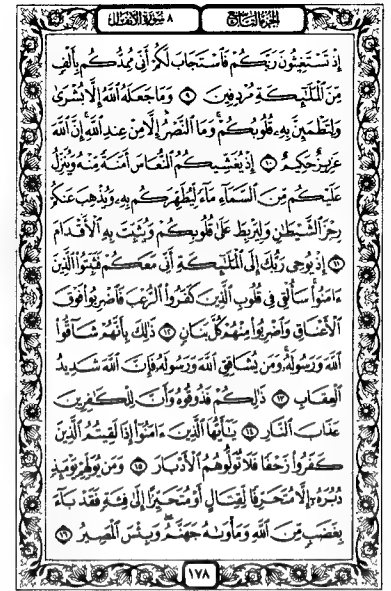 الجزء التاسع
٨ سورة الأنفال
إِذْ تَسْتَغِيثُونَ رَبَّكُمْ فَاسْتَجَابَ لَكُمْ أَنِّي مُمِدُّكُم بِأَلْفٍ
مِّنَ الْمَلَٰٓئِكَةِ مُرْدِفِينَ ٩ وَمَا جَعَلَهُ اللَّهُ إِلَّا بُشْرَىٰ
وَلِتَطْمَئِنَّ بِهِ قُلُوبُكُمْ وَمَا النَّصْرُ إِلَّا مِنْ عِندِ اللَّهِ إِنَّ اللَّهَ
عَزِيزٌ حَكِيمٌ ١٠ إِذْ يُغَشِّيكُمُ النُّعَاسَ أَمَنَةً مِّنْهُ وَيُنَزِّلُ
عَلَيْكُم مِّنَ السَّمَآءِ مَآءً لِّيُطَهِّرَكُم بِهِ وَيُذْهِبَ عَنكُمْ
رِجْزَ الشَّيْطَٰنِ وَلِيَرْبِطَ عَلَىٰ قُلُوبِكُمْ وَيُثَبِّتَ بِهِ الْأَقْدَامَ
١١ إِذْ يُوحِي رَبُّكَ إِلَى الْمَلَٰٓئِكَةِ أَنِّي مَعَكُمْ فَثَبِّتُوا الَّذِينَ
ءَامَنُوا سَأُلْقِي فِي قُلُوبِ الَّذِينَ كَفَرُوا الرُّعْبَ فَاضْرِبُوا فَوْقَ
الْأَعْنَاقِ وَاضْرِبُوا مِنْهُمْ كُلَّ بَنَانٍ ١٢ ذَٰلِكَ بِأَنَّهُمْ شَآقُّوا
اللَّهَ وَرَسُولَهُ وَمَن يُشَاقِقِ اللَّهَ وَرَسُولَهُ فَإِنَّ اللَّهَ شَدِيدُ
الْعِقَابِ ١٣ ذَٰلِكُمْ فَذُوقُوهُ وَأَنَّ لِلْكَٰفِرِينَ
عَذَابَ النَّارِ ١٤ يَٰٓأَيُّهَا الَّذِينَ ءَامَنُوا إِذَا لَقِيتُمُ الَّذِينَ
كَفَرُوا زَحْفًا فَلَا تُوَلُّوهُمُ الْأَدْبَارَ ١٥ وَمَن يُوَلِّهِمْ يَوْمَئِذٍ
دُبُرَهُ إِلَّا مُتَحَرِّفًا لِّقِتَالٍ أَوْ مُتَحَيِّزًا إِلَىٰ فِئَةٍ فَقَدْ بَآءَ
بِغَضَبٍ مِّنَ اللَّهِ وَمَأْوَىٰهُ جَهَنَّمُ وَبِئْسَ الْمَصِيرُ ١٦
١٧٨